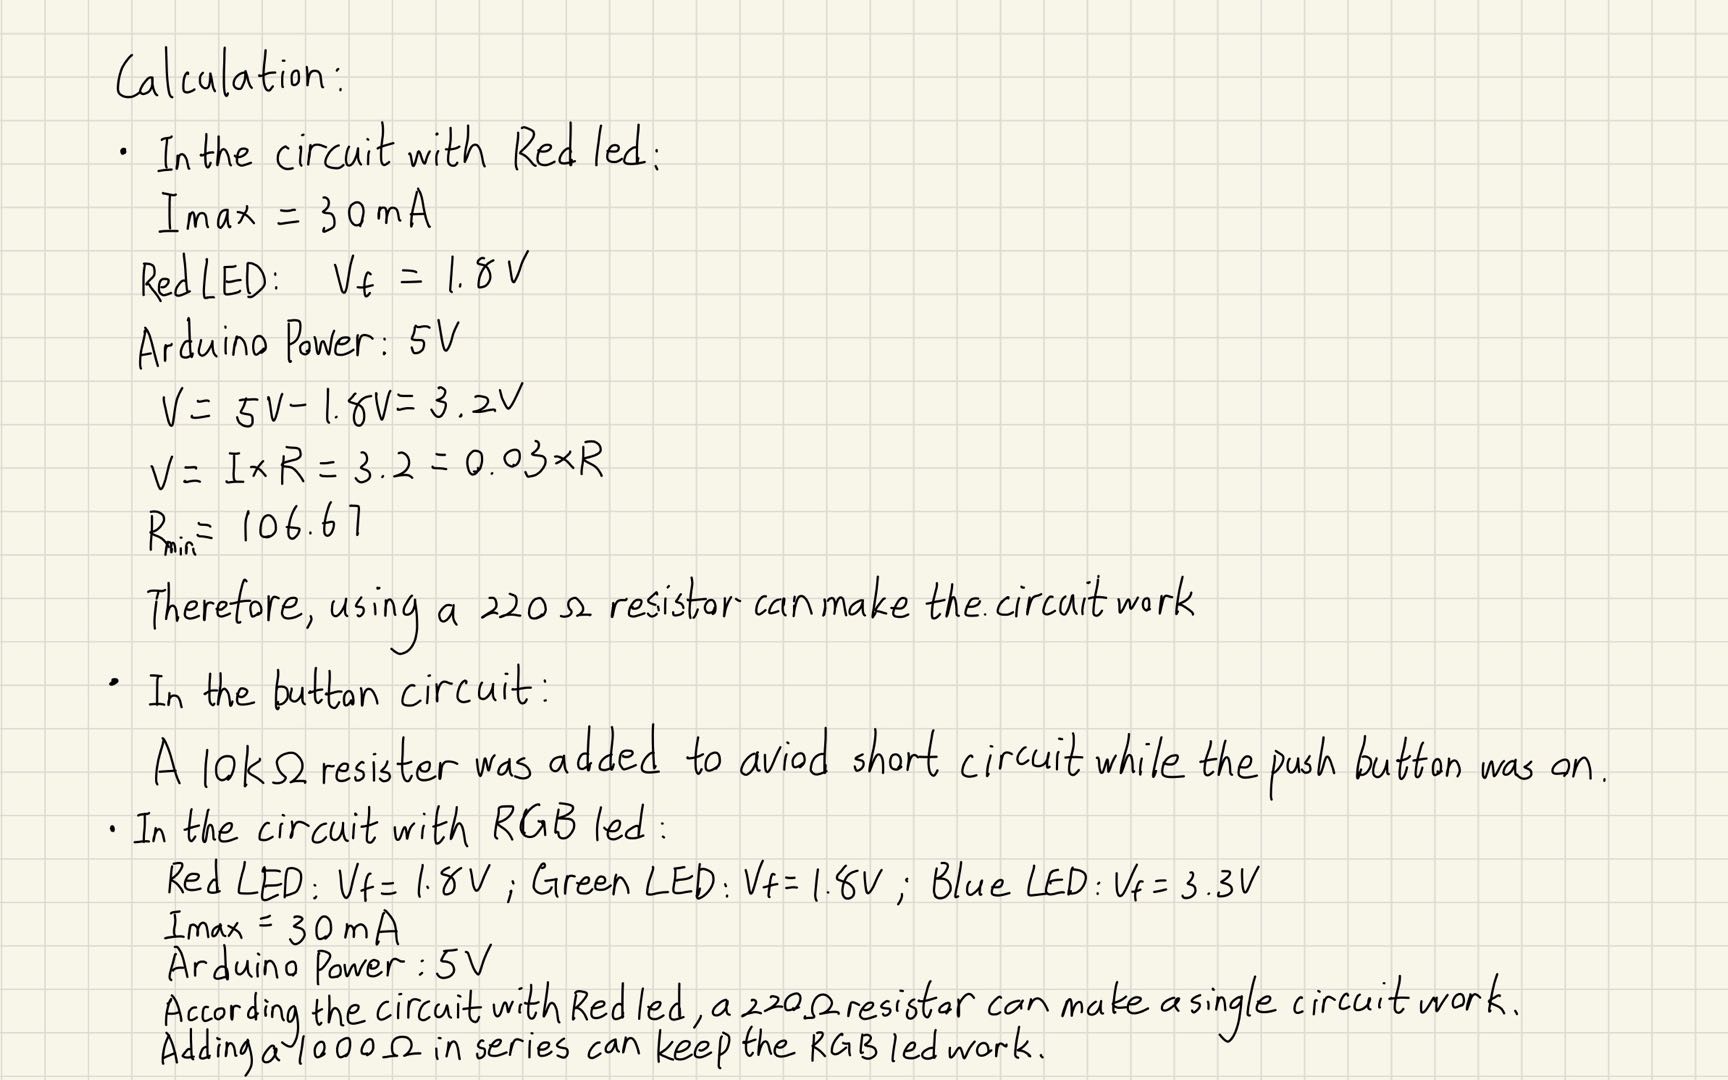 Calculation:
· In the circuit with Red led:
Imax = 30mA
Red LED: Vf = 1.8V
Arduino Power: 5V
V= 5V-1.8V= 3.2V
V= I×R = 3.2 = 0.03×R
Rmin= 106.67
Therefore, using a 220Ω resistor can make the circuit work
· In the button circuit:
A 10kΩ resister was added to aviod short circuit while the push button was on.
· In the circuit with RGB led:
Red LED: Vf= 1.8V ; Green LED: Vf= 1.8V ; Blue LED: Vf = 3.3V
Imax = 30mA
Arduino Power : 5V
According the circuit with Red led, a 220Ω resistor can make a single circuit work.
Adding a 1000Ω in series can keep the RGB led work.